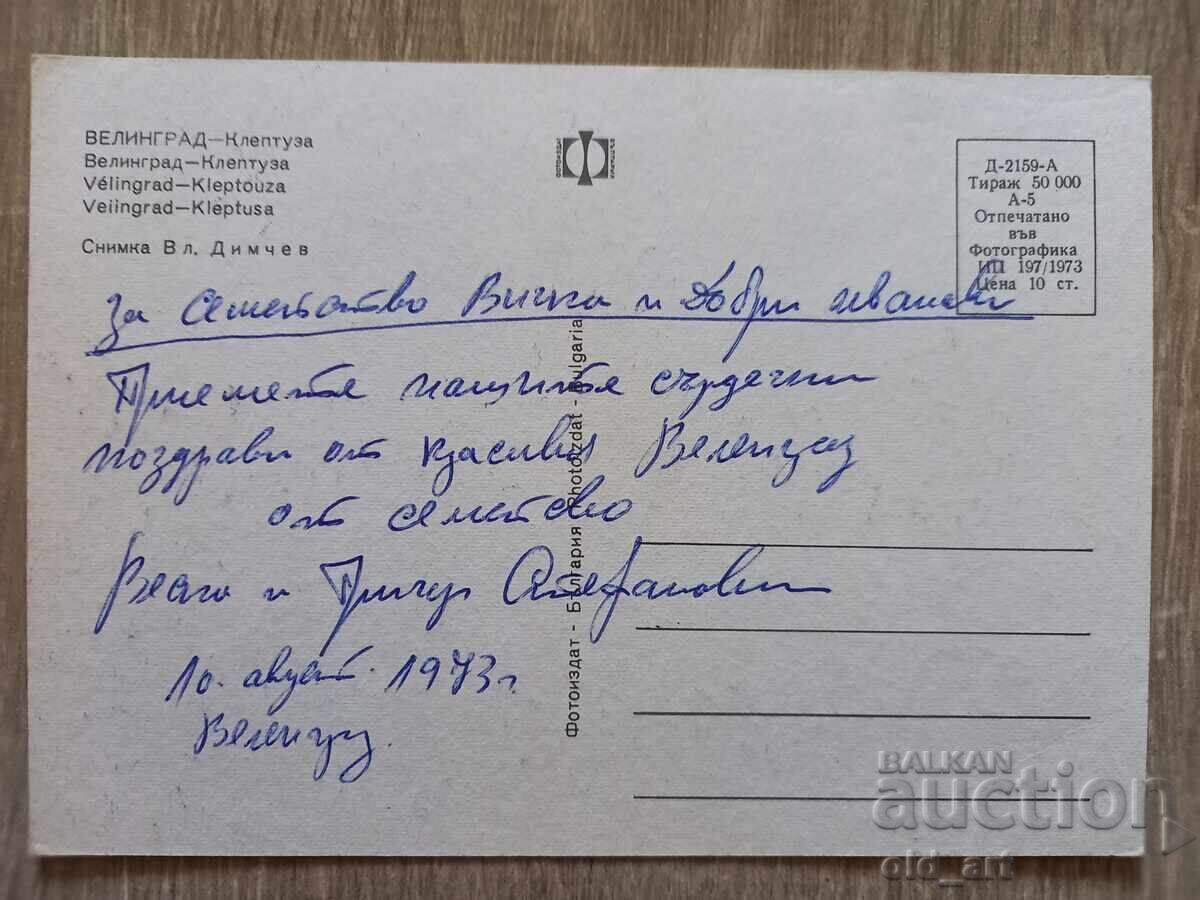 ВЕЛИНГРАД—Клептуза
Велинград—Клептуза
Vélingrad—Kleptouza
Velingrad—Kleptusa
Снимка Вл. Димчев
Д-2159-А
Тираж 50 000
А-5
Отпечатано
във
Фотографика
ИП 197/1973
Цена 10 ст.
за семейство и Добри Иванови
Приемете нашите сърдечни
поздрави от красивия Веленград
от семейство
и Стефанови
10. август 1973 г.
Веленград.
Фотоиздат - България Photoizdat - Bulgaria
BALKAN
auction
old_art